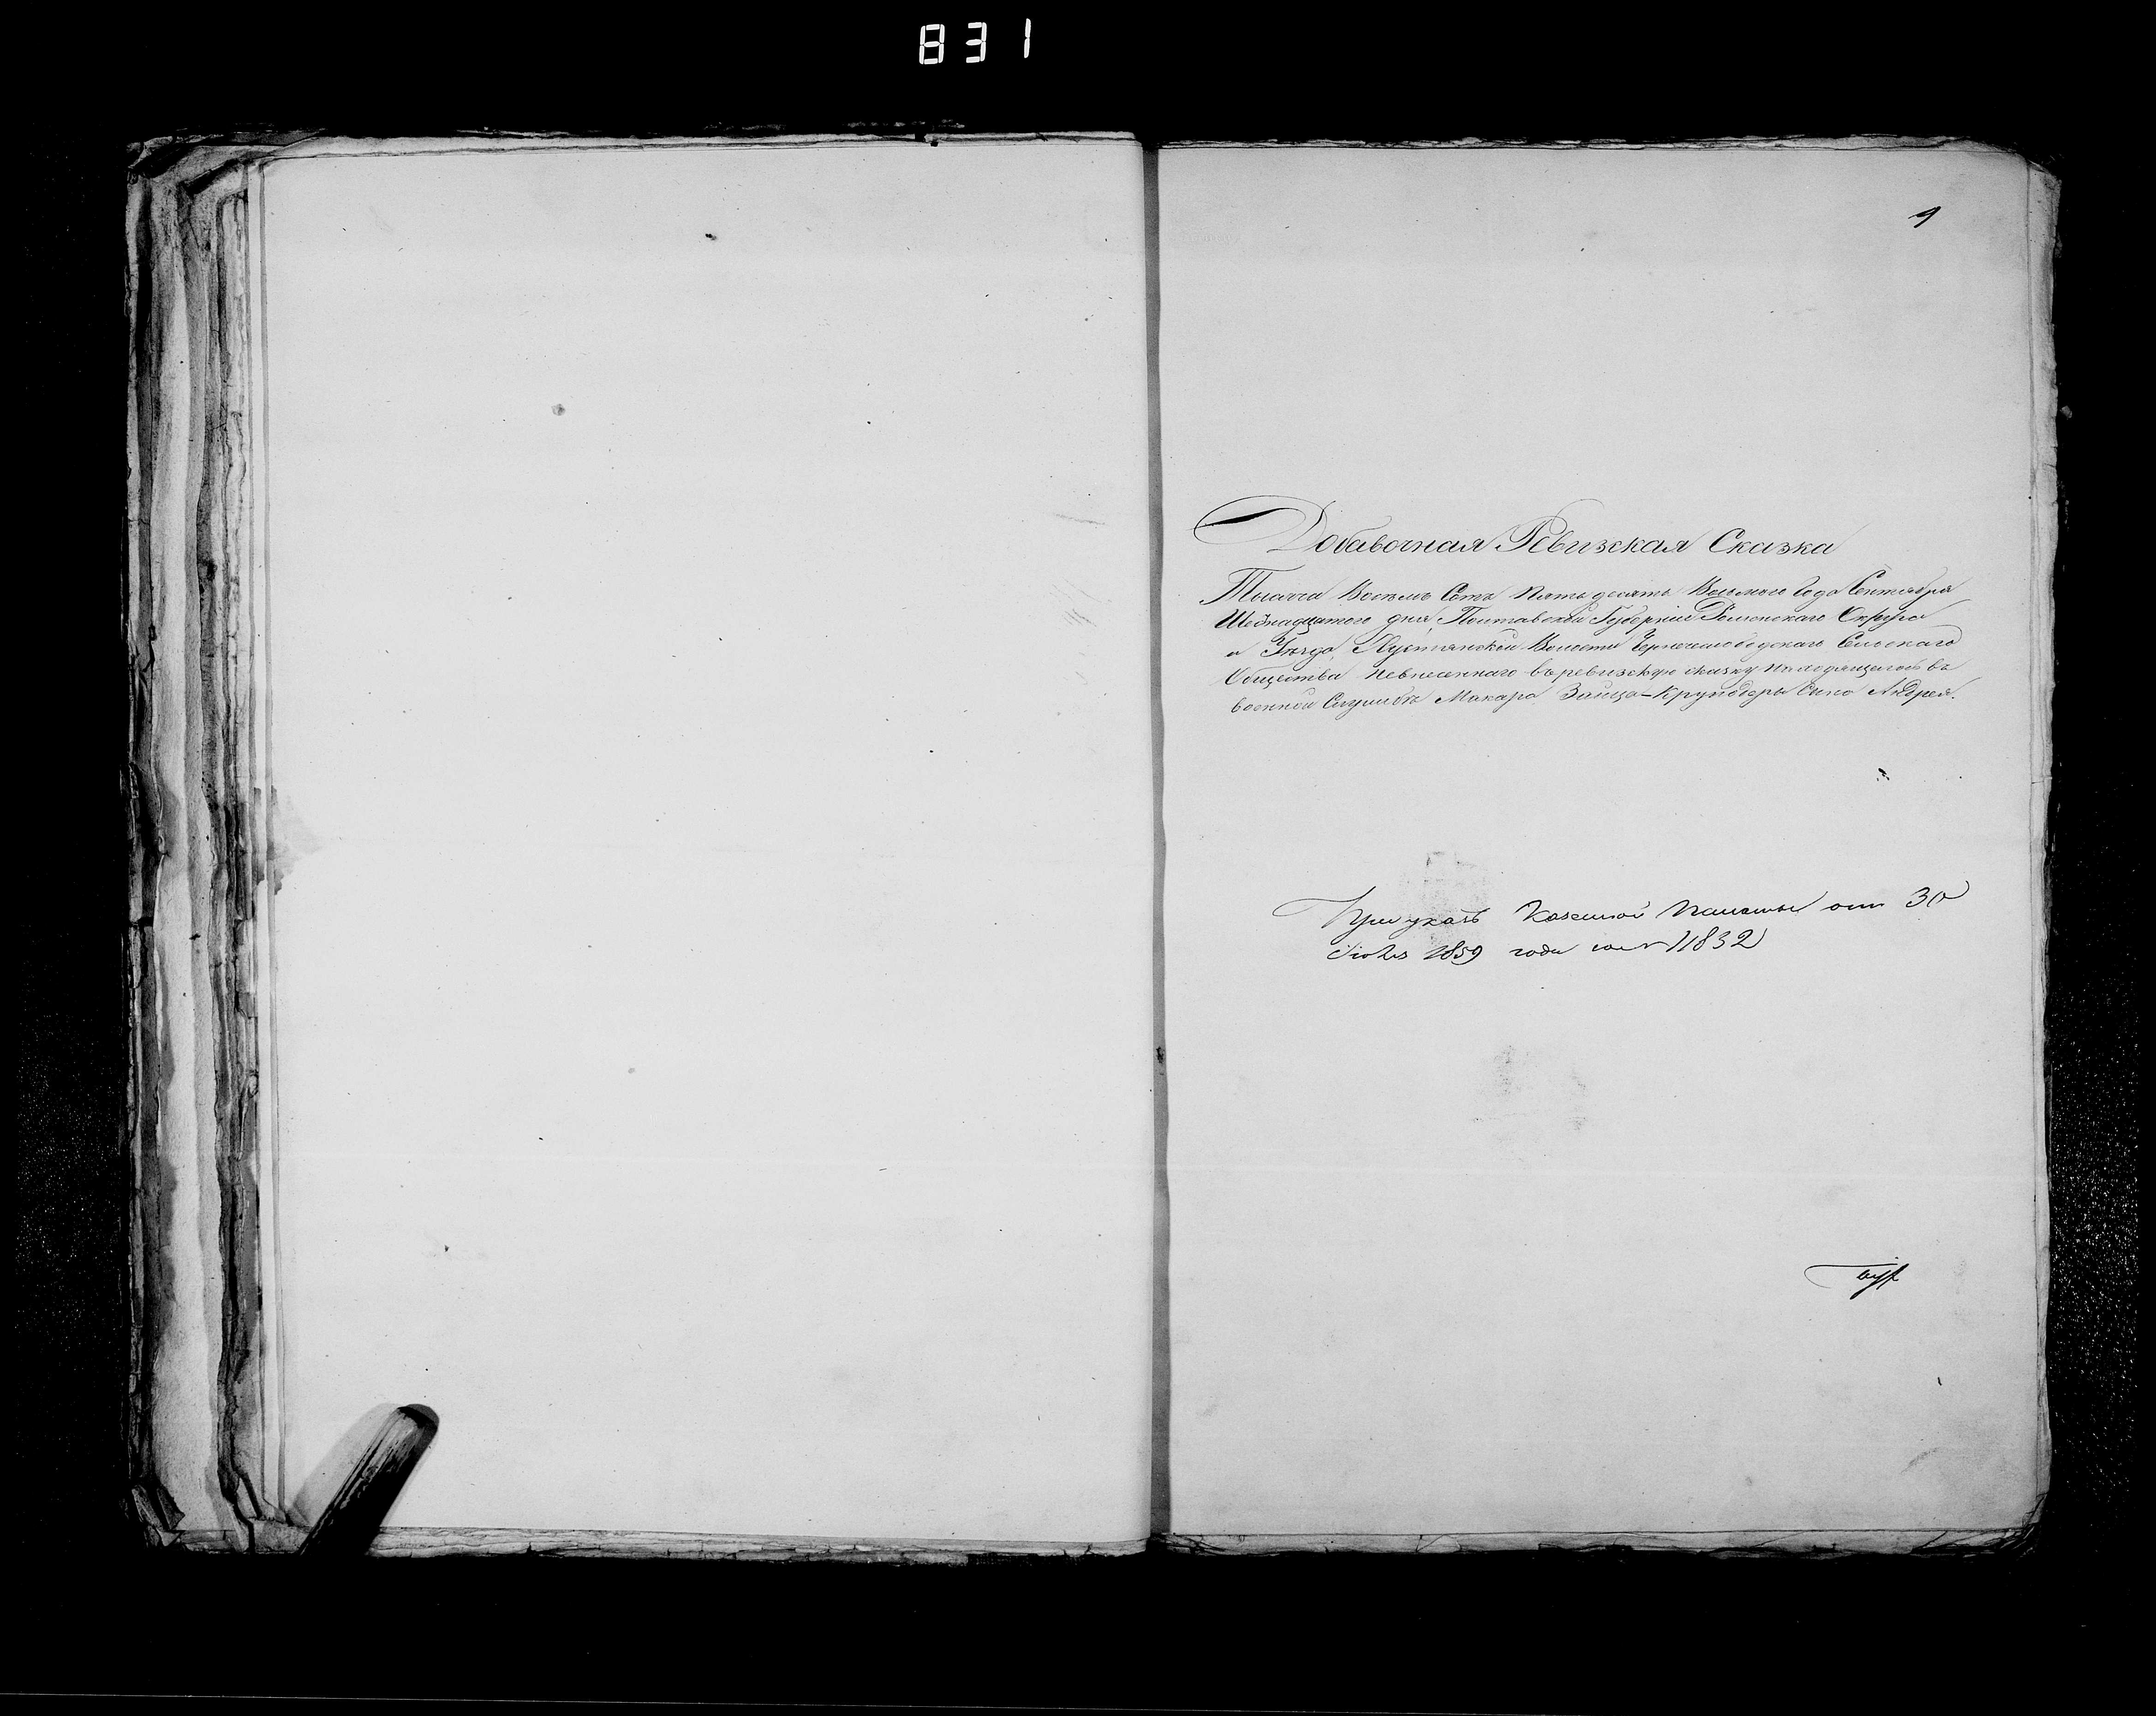 831
9
Добавочная Ревизская Сказка
Тысяча Восемь Сотъ Пятьдесятъ Восьмаго Года Сентября
Шеснадцатого дня, Полтавской Губернии Роменскаго Округа
и Уѣзда, Пустынской Волости Чернечеслободскаго Сельскаго
Общества невписаннаго въ ревизскую сказку находящегось въ
военной Службѣ Макара Зайца-Круподеры сына Андрея.
При указѣ Казенной Палаты отъ 30
Iюля 1859 года за № 11832